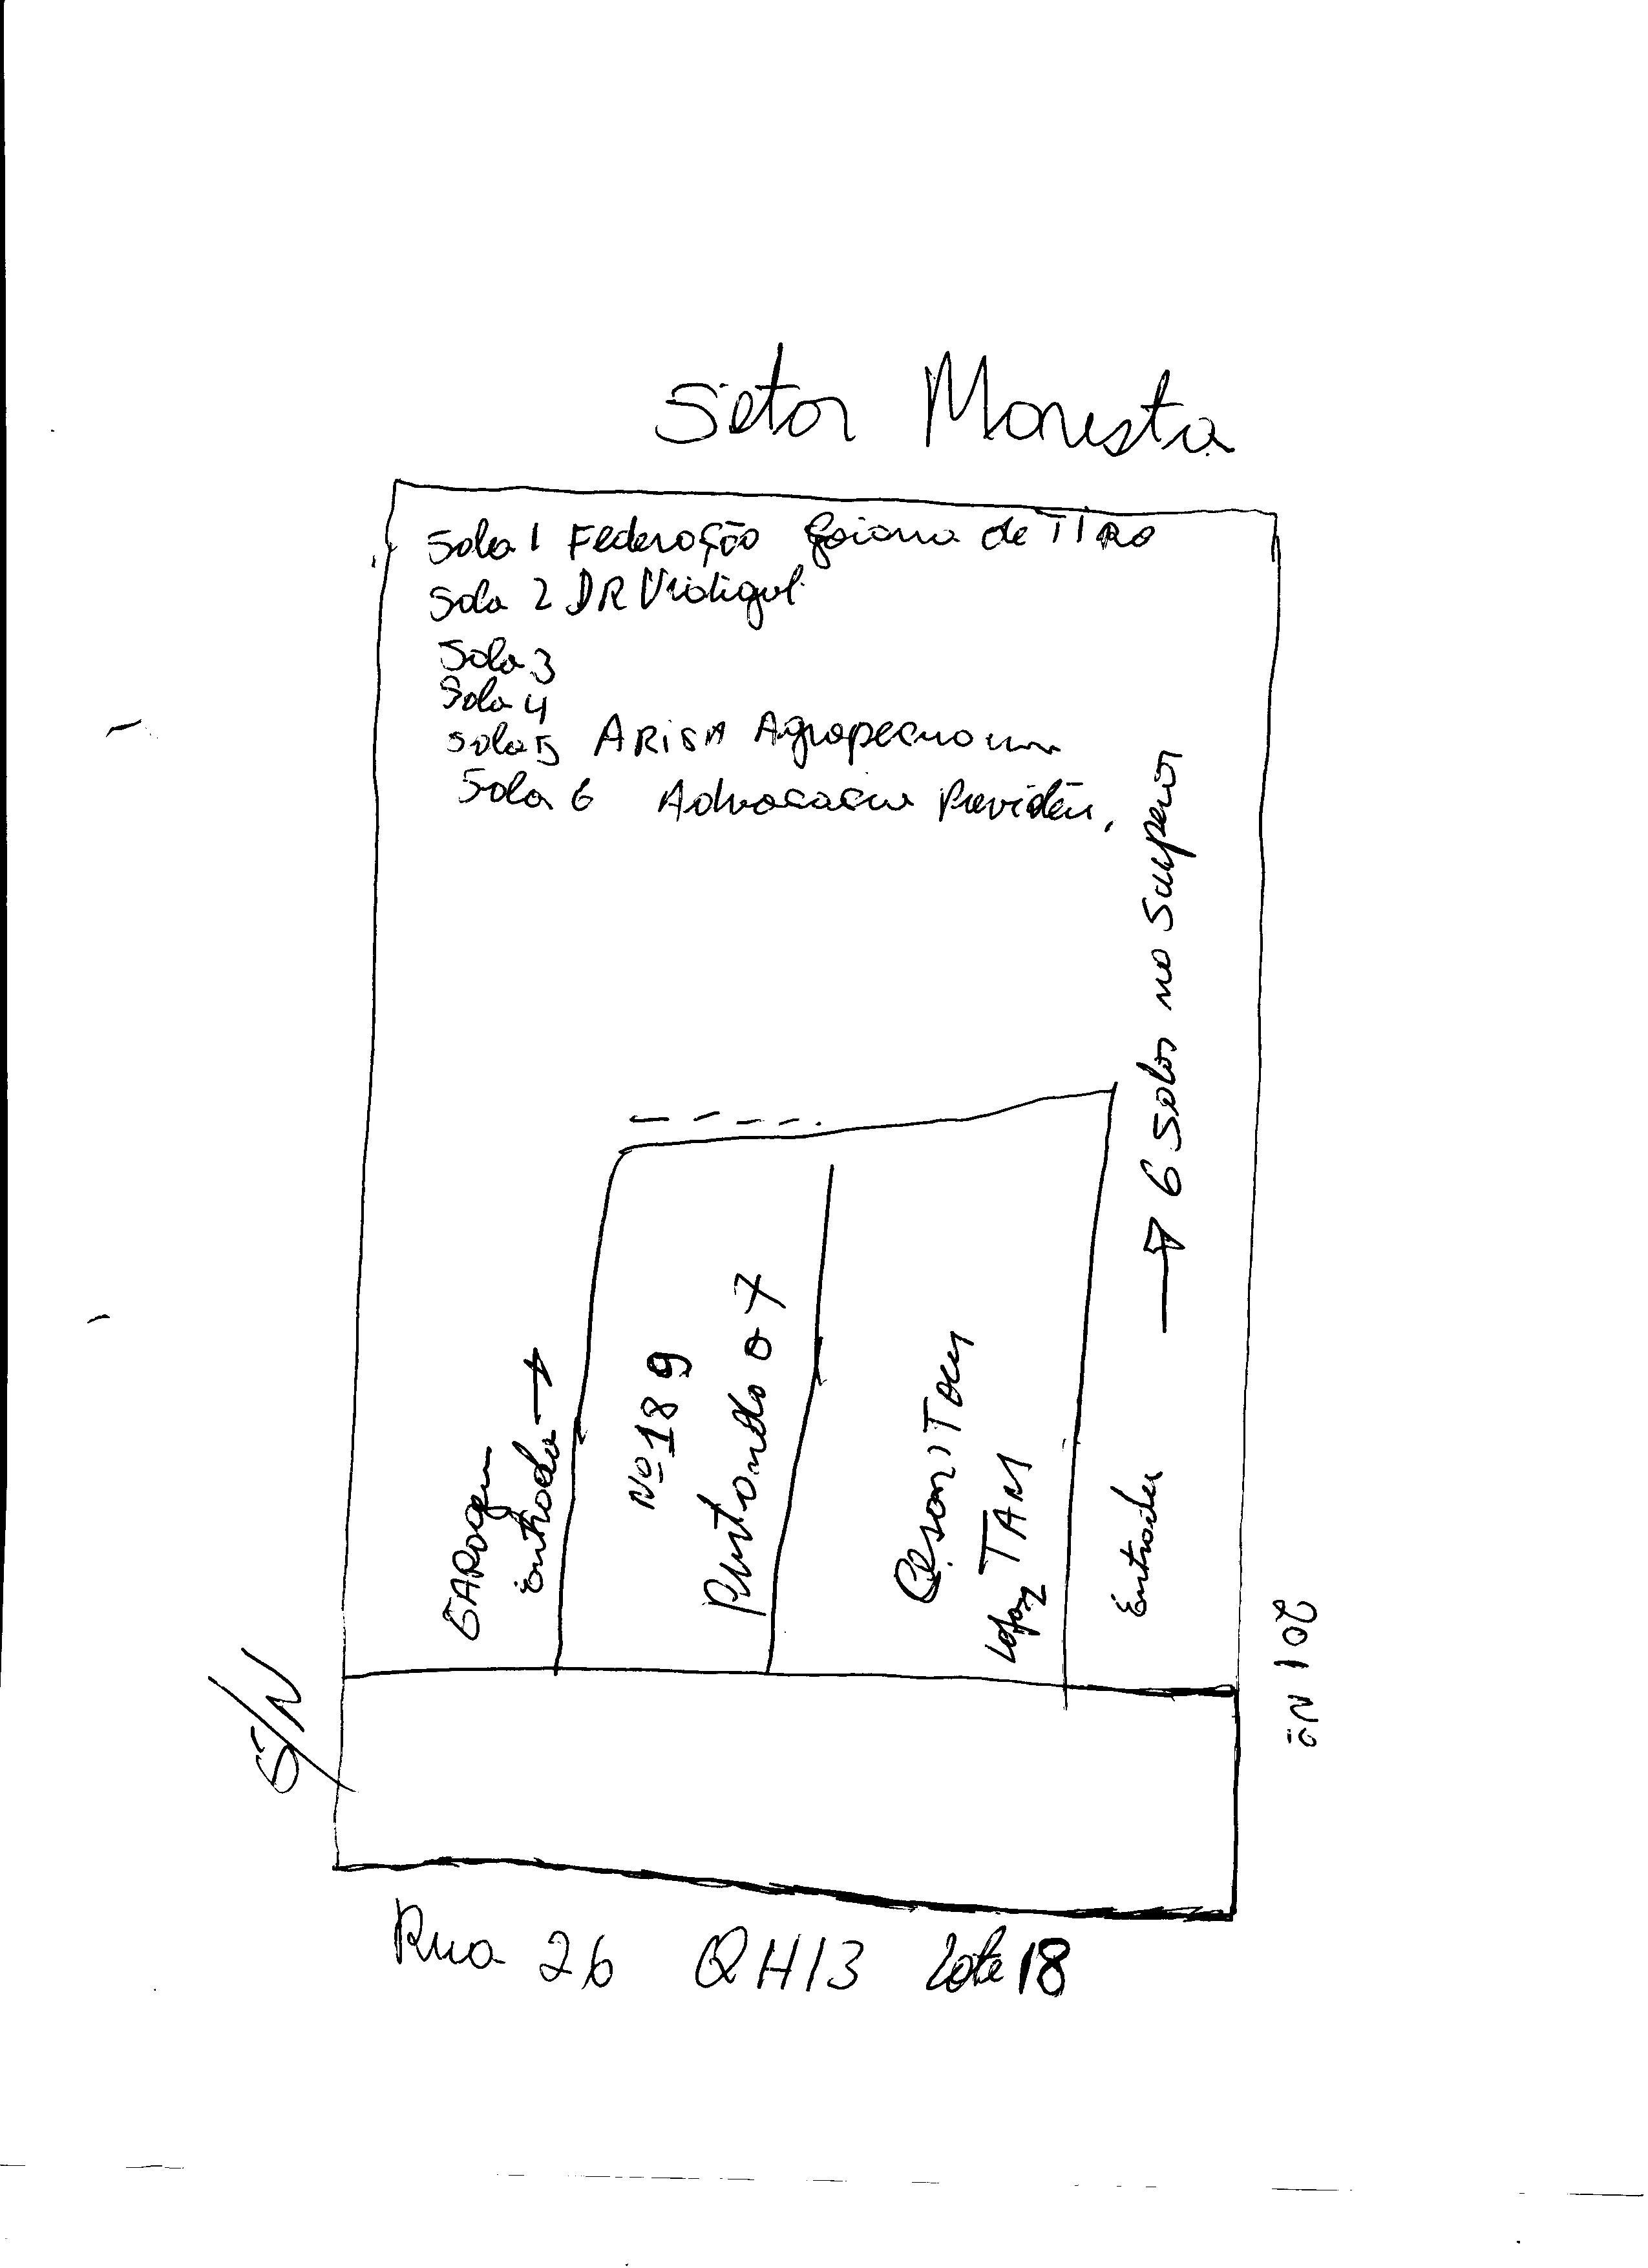 Setor Marista
Sala 1 Federação Goiana de TIRO
Sala 2 DR Vidigal
Sala 3
Sala 4
Sala 5 ARISA Agropecuaria
Sala 6 Advocacia Previdên.
→ 6 Salas no Superior
GARagem
Entrada →
Nº 189
07
TAM
Entrada
S/N
201 Nº
Rua 26 QH13 Lote 18